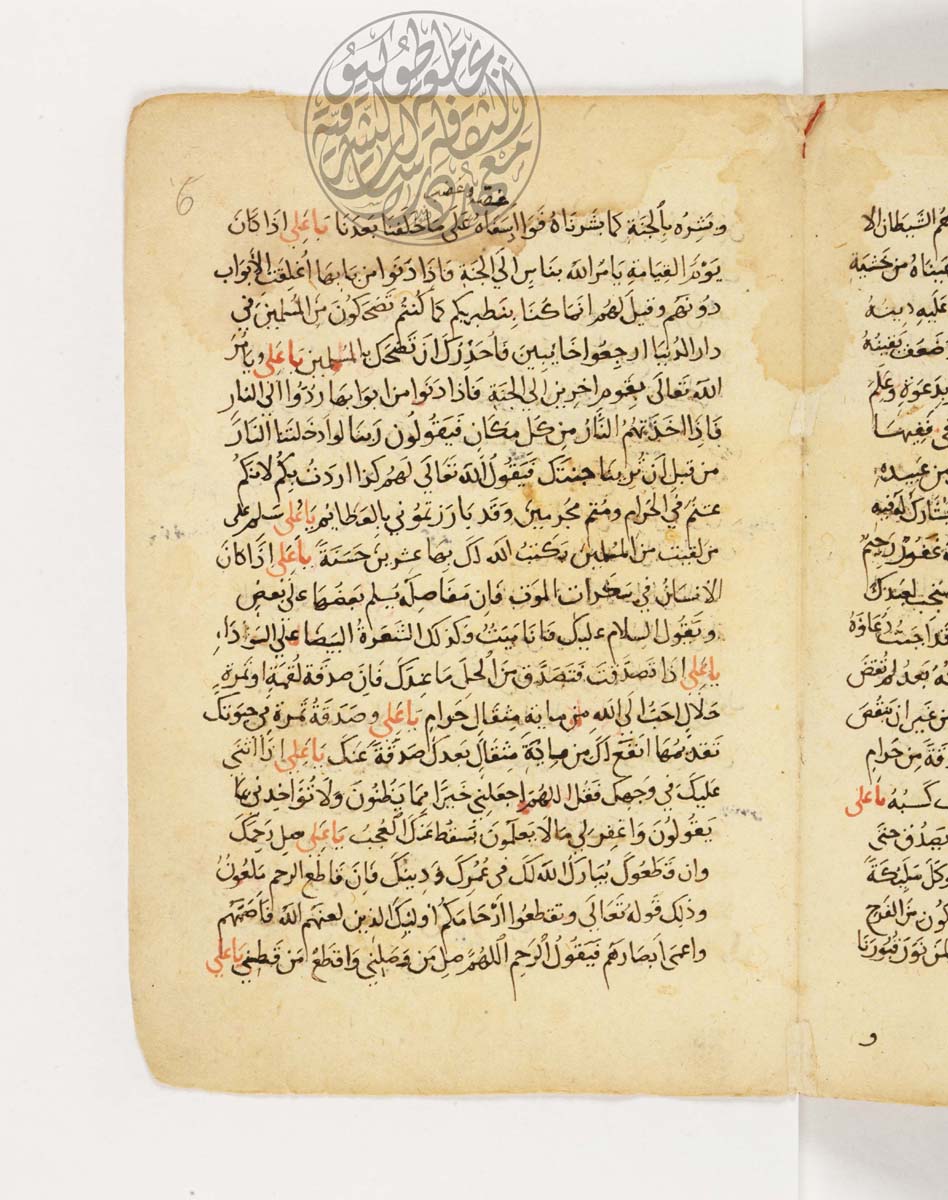 6
وبشره بالجنة كما بشرناه فوا اسفاه على ما خلفنا بعدنا يا علي اذا كان
يوم القيامة يامر الله بناس الي الجنة فاذا دنوا من بابها اغلقت الابواب
دونهم وقيل لهم انما كنا ننظر بكم كما كنتم تضحكون من المسلمين في
دار الدنيا ارجعوا خايبين فاحذرك ان تضحك بالمسلمين يا علي ويامر
الله تعالى بقوم اخرين الي الجنة فاذا دنوا من ابوابها ردوا الى النار
فاذا اخذتهم النار من كل مكان فيقولون ربنا لو ادخلتنا النار
من قبل ان ترينا جنتك فيقول الله تعالي لهم كذا اردت بكم لانكم
عشتم في الحرام ومتم مجرمين وقد بارزتموني بالعظايم يا علي سلم على
من لقيت من المسلمين يكتب الله لك بها عشرين حسنة يا علي اذا كان
الانسان في سكرات الموت فان مفاصله يسلم بعضها على بعض
ويقول السلام عليك فانا ميت وكذلك الشعرة البيضا علي السوداء
يا علي اذا تصدقت فتصدق من الحل ما عندك فان صدقة لقمة او تمرة
حلال احب الي الله من ماية مثقال حرام يا علي وصدقة تمرة في حيوتك
تقدمها انفع لك من ماية مثقال بعدك صدقة عنك يا علي اذا اثنى
عليك في وجهك فقل اللهم اجعلني خيرا مما يظنون ولا تؤاخذني بما
يقولون واغفر لي ما لا يعلمون تسقط عنك العجب يا علي صل رحمك
وان قطعوك يبارك الله لك في عمرك ودينك فان قاطع الرحم ملعون
وذلك قوله تعالي وتقطعوا ارحامكم اوليك الذين لعنهم الله فاصمهم
واعمى ابصارهم فيقول الرحم اللهم صل من وصلني واقطع من قطعني يا علي
الشيطان الا
عيناه من خشية
عليه دينه
ضعف يقينه
وعلم
من عبيده
غفور رحيم
بعد لم تنقض
من غير ان ينقص
من حرام
كسبه يا علي
يصدق حتى
من الفرج
نور قبورنا
و